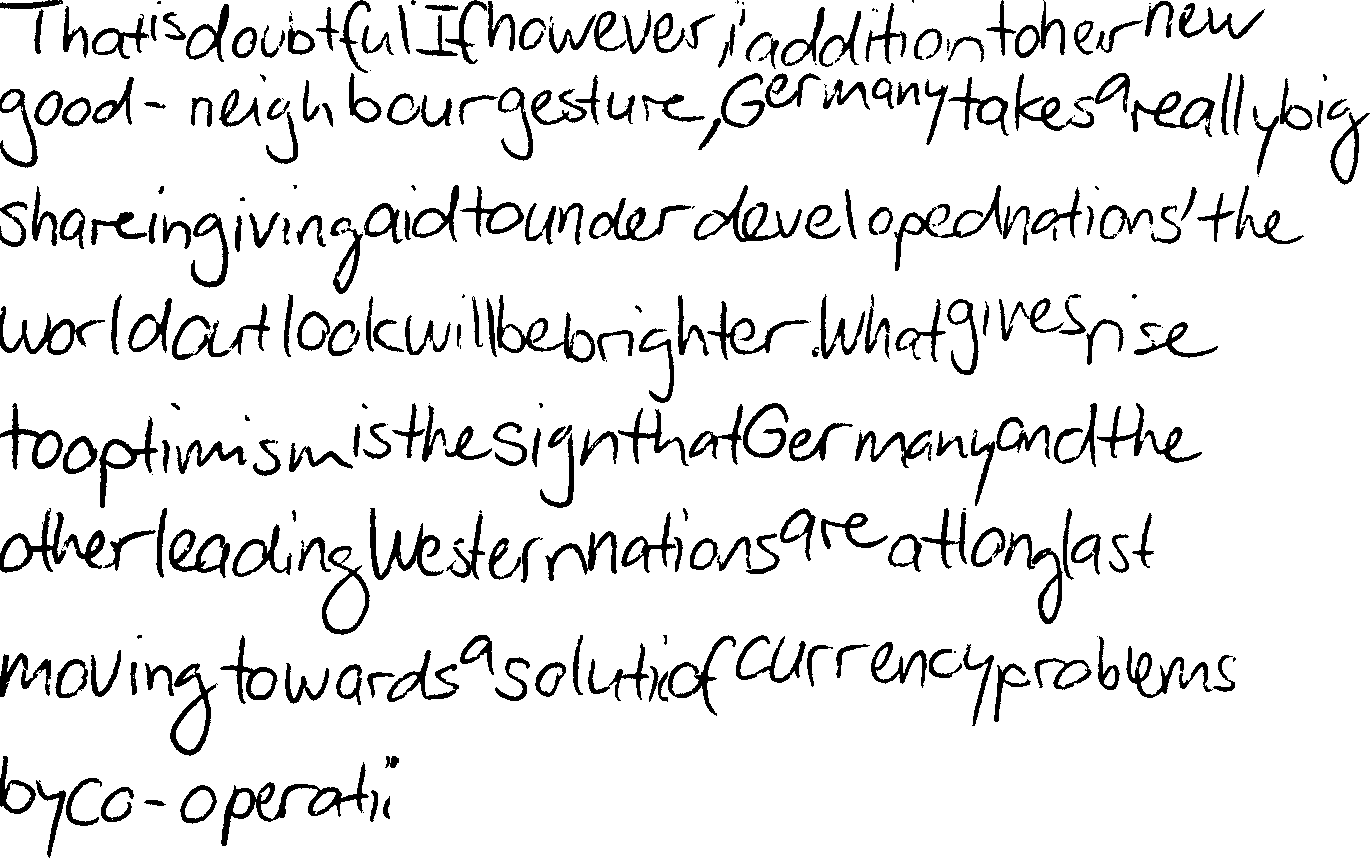 That is doubtful If however, i' addition to her new
good-neighbour gesture, Germany takes a really big
share in giving aid to under developed nations' the
world outlook will be brighter. What gives rise
to optimism is the sign that Germany and the
other leading Western nations are at long last
moving towards a soluti of currency problems
by co-operati